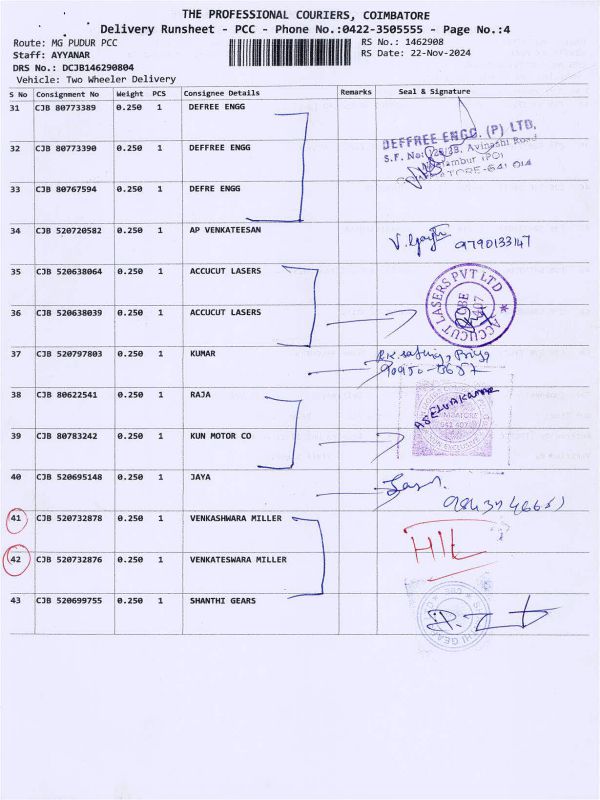 THE PROFESSIONAL COURIERS, COIMBATORE
Delivery Runsheet - PCC - Phone No.:0422-3505555 - Page No.:4
Route: MG PUDUR PCC
RS No.: 1462908
Staff: AYYANAR
RS Date: 22-Nov-2024
DRS No.: DCJB146290804
Vehicle: Two Wheeler Delivery
S No Consignment No Weight PCS Consignee Details Remarks Seal & Signature
31 CJB 80773389 0.250 1 DEFREE ENGG
32 CJB 80773390 0.250 1 DEFFREE ENGG
DEFFREE ENGG. (P) LTD,
Avinashi Road
33 CJB 80767594 0.250 1 DEFRE ENGG
34 CJB 520720582 0.250 1 AP VENKATEESAN
9790133147
35 CJB 520638064 0.250 1 ACCUCUT LASERS
36 CJB 520638039 0.250 1 ACCUCUT LASERS
ACCUCUT LASERS PVT LTD
37 CJB 520797803 0.250 1 KUMAR
38 CJB 80622541 0.250 1 RAJA
39 CJB 80783242 0.250 1 KUN MOTOR CO
40 CJB 520695148 0.250 1 JAYA
41 CJB 520732878 0.250 1 VENKASHWARA MILLER
HIL
42 CJB 520732876 0.250 1 VENKATESWARA MILLER
43 CJB 520699755 0.250 1 SHANTHI GEARS